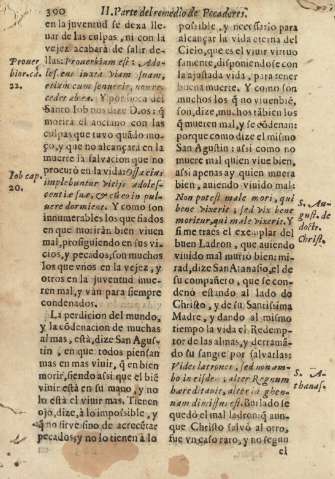 300 II. Parte del remedio de Pecadores.
en la juventud se dexa lle-
uar de las culpas, ni con la
vejez acabarà de salir de-
Prouer
bior. ca.
22.
llas: Prouerbium est: Ado-
lescens iuxta viam suam,
etiam cum senuerit, non re-
cedet ab ea. Y por boca del
Santo Iob nos dize Dios: q̃
morira el anciano con las
culpas que tuvo quãdo mo-
ço, y que no alcançarà en la
muerte la salvacion que no
procurò en la vida: Ossa eius
Iob cap.
20.
implebuntur vitijs adoles-
centiæ suæ, & cum eo in pul-
uere dormient. Y como son
innumerables los que fiados
en que morirán bien viuen
mal, prosiguiendo en sus vi-
cios, y pecados, son muchos
los que vnos en la vejez, y
otros en la juventud mue-
ren mal, y van para siempre
condenados.
La perdicion del mundo,
y la cõdenacion de muchas
almas, està, dize San Agus-
tin, en que todos piensan
mas en mas viuir, q̃ en bien
morir, siendo assi que el biẽ
viuir està en su mano, y no
lo està el viuir mas. Tienen
ojo, dize, à lo impossible, y
q̃ no sirve sino de acrecẽtar
pecados, y no lo tienen à lo
possible, y necessario para
alcançar la vida eterna del
Cielo, que es el viuir virtuo
samente, disponiendose con
la ajustada vida, para tener
buena muerte. Y como son
muchos los q̃ no viuen biẽ,
son, dize, muchos tãbien los
q̃ mueren mal, y se cõdenan:
porque como dize el mismo
San Agustin: assi como no
muere mal quien viue bien,
assi apenas ay quien muera
bien, auiendo viuido mal:
S. Au-
gust. de
doctr.
Christ.
Non potest male mori, qui
bene vixerit; sed vix bene
moritur, qui male vixerit. Y
si me traes el exemplar del
buen Ladron, que auiendo
viuido mal murió bien: mi-
rad, dize San Atanasio, el de
su compañero, que se con-
denò estando al lado do
Christo, y de su Santissima
Madre, y dando al mismo
tiempo la vida el Redemp-
tor de las almas, y derramã-
do su sangre por salvarlas:
S. A-
thanas.
Vides latrones, sed non am-
bo in eisdem; alter Regnum
hæreditante, alter in gehen-
nam dimissus est. Burlado se
quedó el mal ladron: q̃ aun-
que Christo salvò al otro,
fue vn caso raro, y no segun
el